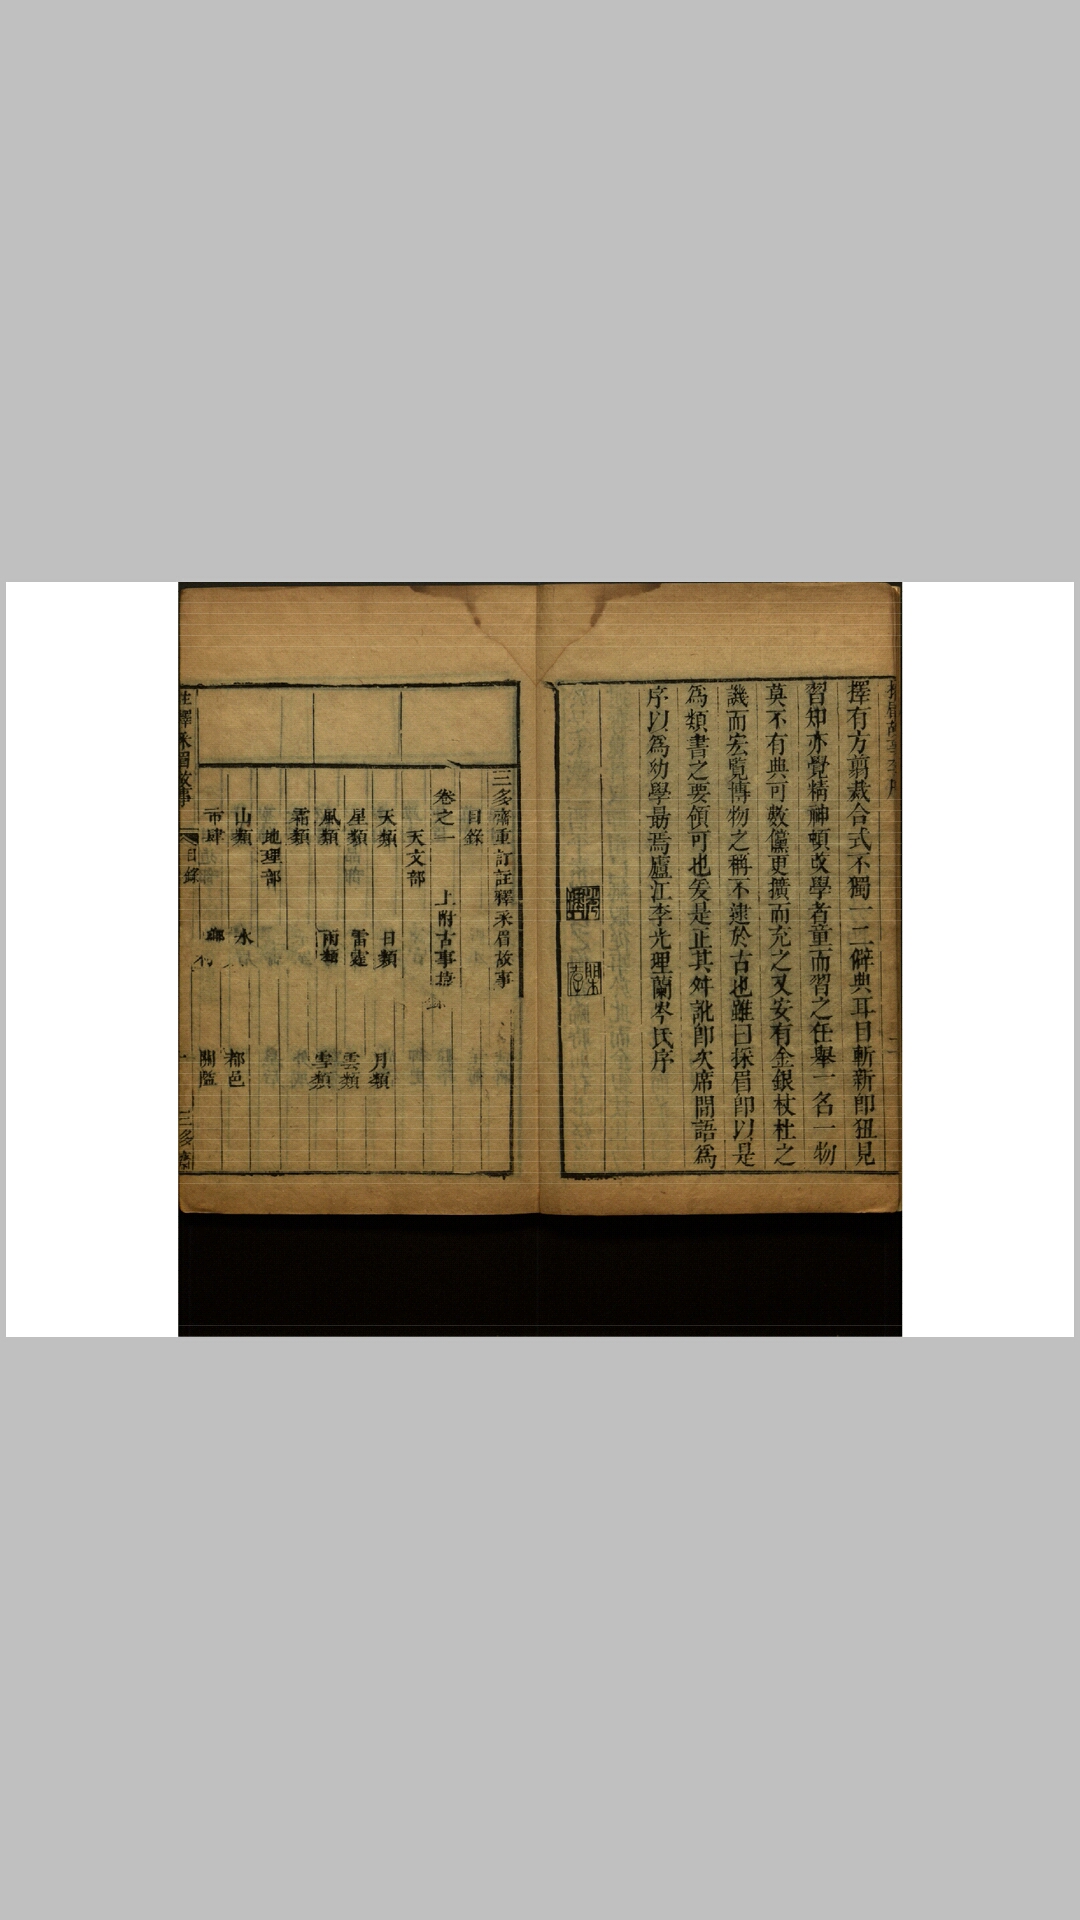 擇有方剪裁合式不獨一二僻典耳目斬新即狃見
習知亦覺精神頓改學者童而習之任舉一名一物
莫不有典可數儻更擴而充之又安有金銀杖杜之
譏而宏覽博物之稱不逮於古也雖曰採眉即以是
爲類書之要領可也爰是正其舛訛即次席間語爲
序以爲幼學最焉廬江李光理蘭岑氏序
三多齋重訂註釋采眉故事
目錄
卷之一 上附古事
天文部
天類 日類 月類
星類 雷霆 雲類
風類 雨類 雪類
霜類
地理部
山類 水 都邑
市肆 鄉村 關監
註釋采眉故事 目錄 一 三多齋